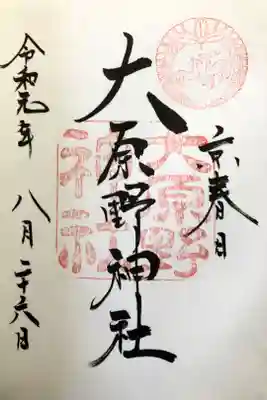 京春日
大原野神社
大原野
神社
令和元年 八月二十六日